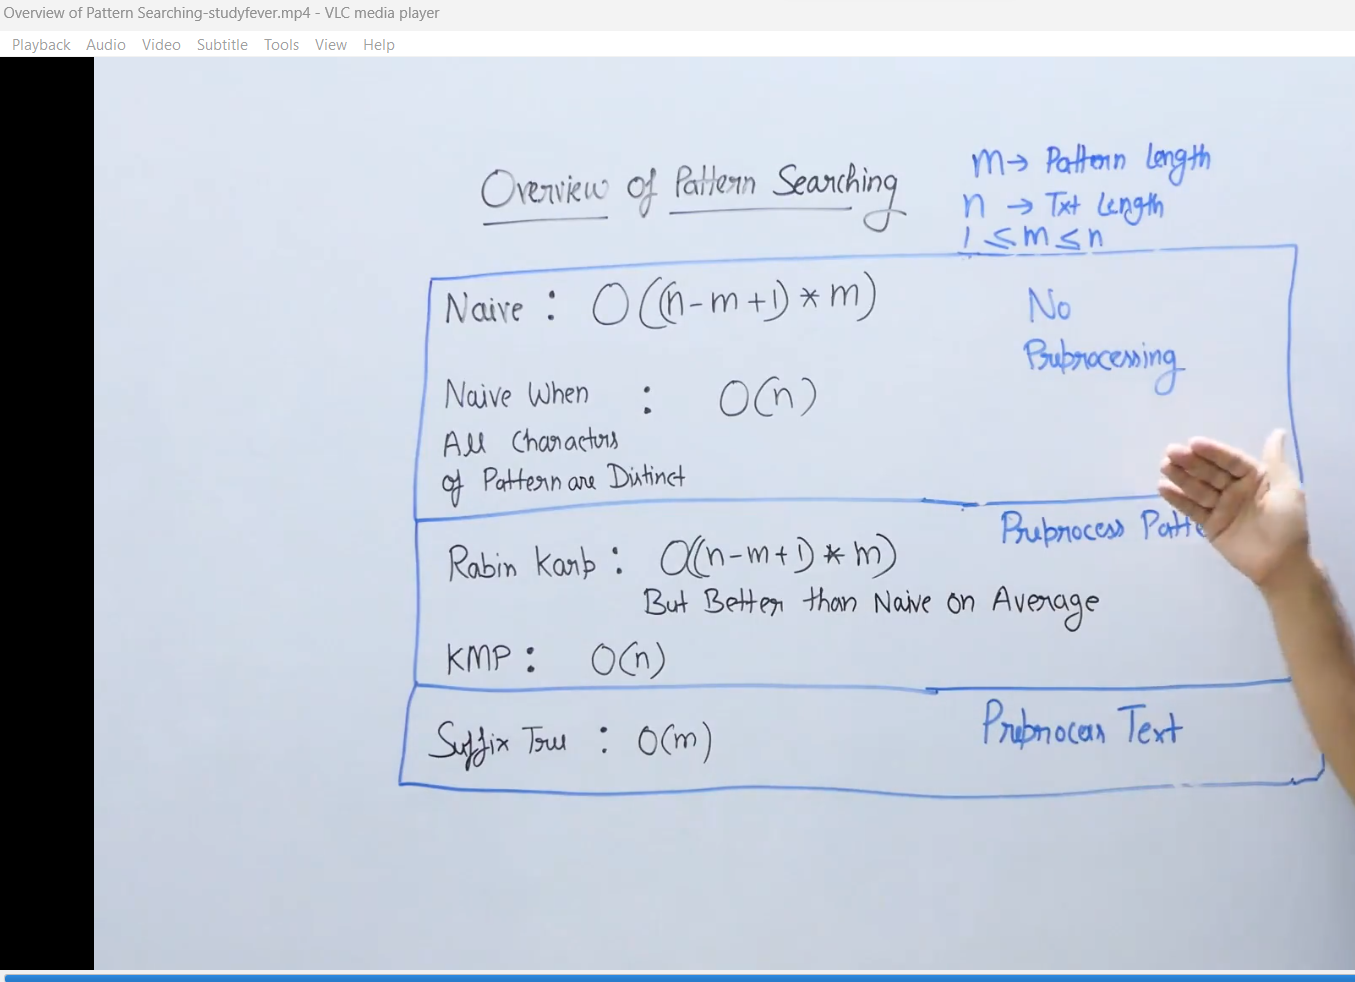 Overview of Pattern Searching-studyfever.mp4 - VLC media player
Playback Audio Video Subtitle Tools View Help
Overview of Pattern Searching
m→ Pattern Length
n → Txt Length
1 ≤ m ≤ n
Naive : O((n-m+1) * m)
No
Preprocessing
Naive When : O(n)
All Charactors
of Pattern are Distinct
Preprocess Patte
Rabin Karp : O((n-m+1) * m)
But Better than Naive on Average
KMP : O(n)
Suffix Tree : O(m)
Preprocess Text